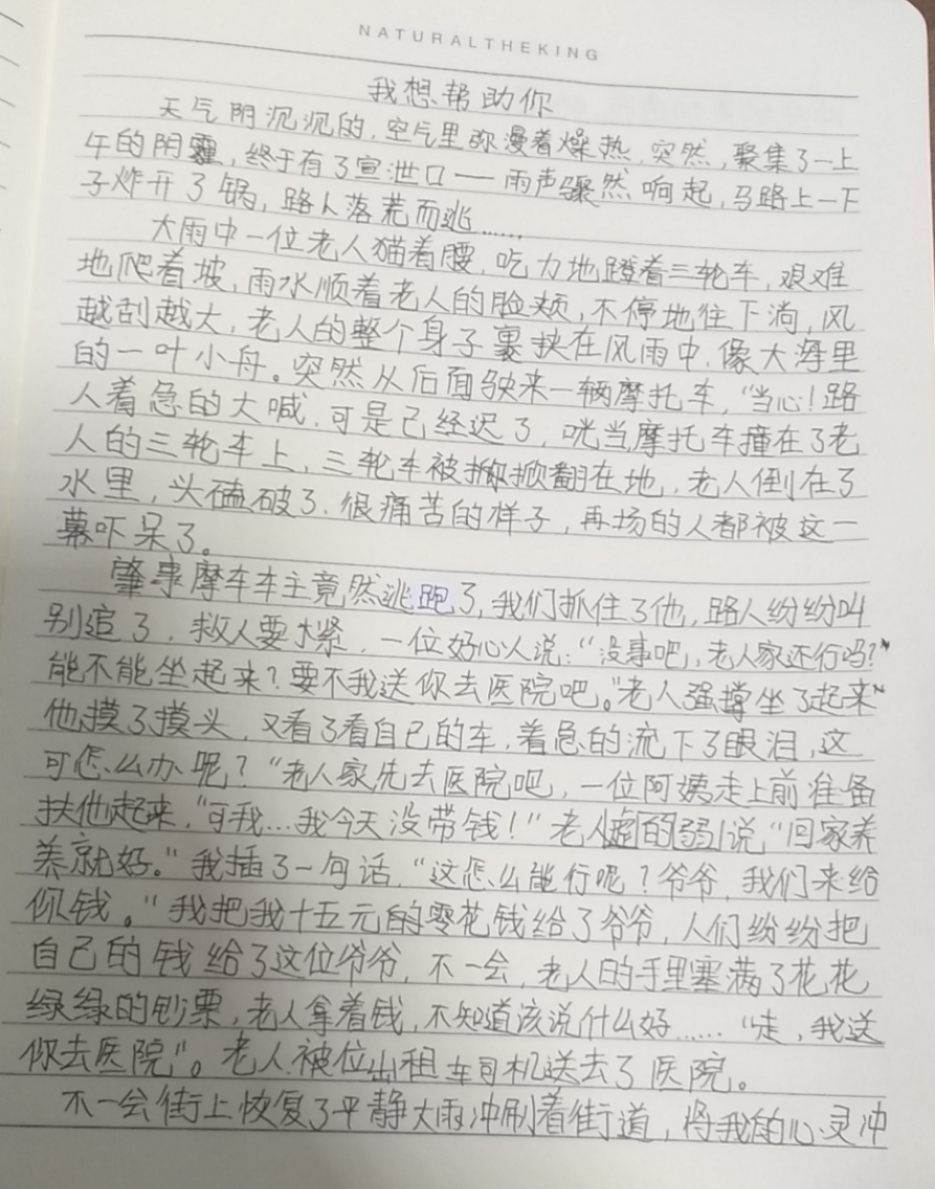 NATURALTHEKING
我想帮助你
天气阴沉沉的,空气里弥漫着燥热,突然,聚集了一上
午的阴霾,终于有了宣泄口——雨声骤然响起,马路上一下
子炸开了锅,路人落荒而逃……
大雨中一位老人猫着腰,吃力地蹬着三轮车,艰难
地爬着坡,雨水顺着老人的脸颊,不停地往下淌,风
越刮越大,老人的整个身子裹挟在风雨中,像大海里
的一叶小舟。突然从后面驶来一辆摩托车,“当心!路
人着急的大喊,可是已经迟了,咣当摩托车撞在了老
人的三轮车上,三轮车被掀翻在地,老人倒在了
水里,头磕破了,很痛苦的样子,再场的人都被这一
幕吓呆了。
肇事摩车车主竟然逃跑了,我们抓住了他,路人纷纷叫
别追了,救人要紧,一位好心人说:“没事吧,老人家还行吗?”
能不能坐起来?要不我送你去医院吧。”老人强撑坐了起来”
他摸了摸头,又看了看自己的车,着急的流下了眼泪,这
可怎么办呢?“老人家先去医院吧,一位阿姨走上前准备
扶他起来,“可我…我今天没带钱!”老人虚的弱说“回家养
养就好。”我插了一句话,“这怎么能行呢?爷爷,我们来给
你钱。”我把我十五元的零花钱给了爷爷,人们纷纷把
自己的钱给了这位爷爷,不一会,老人的手里塞满了花花
绿绿的钞票,老人拿着钱,不知道该说什么好……“走,我送
你去医院”。老人被位出租车司机送去了医院。
不一会街上恢复了平静大雨冲刷着街道,将我的心灵冲